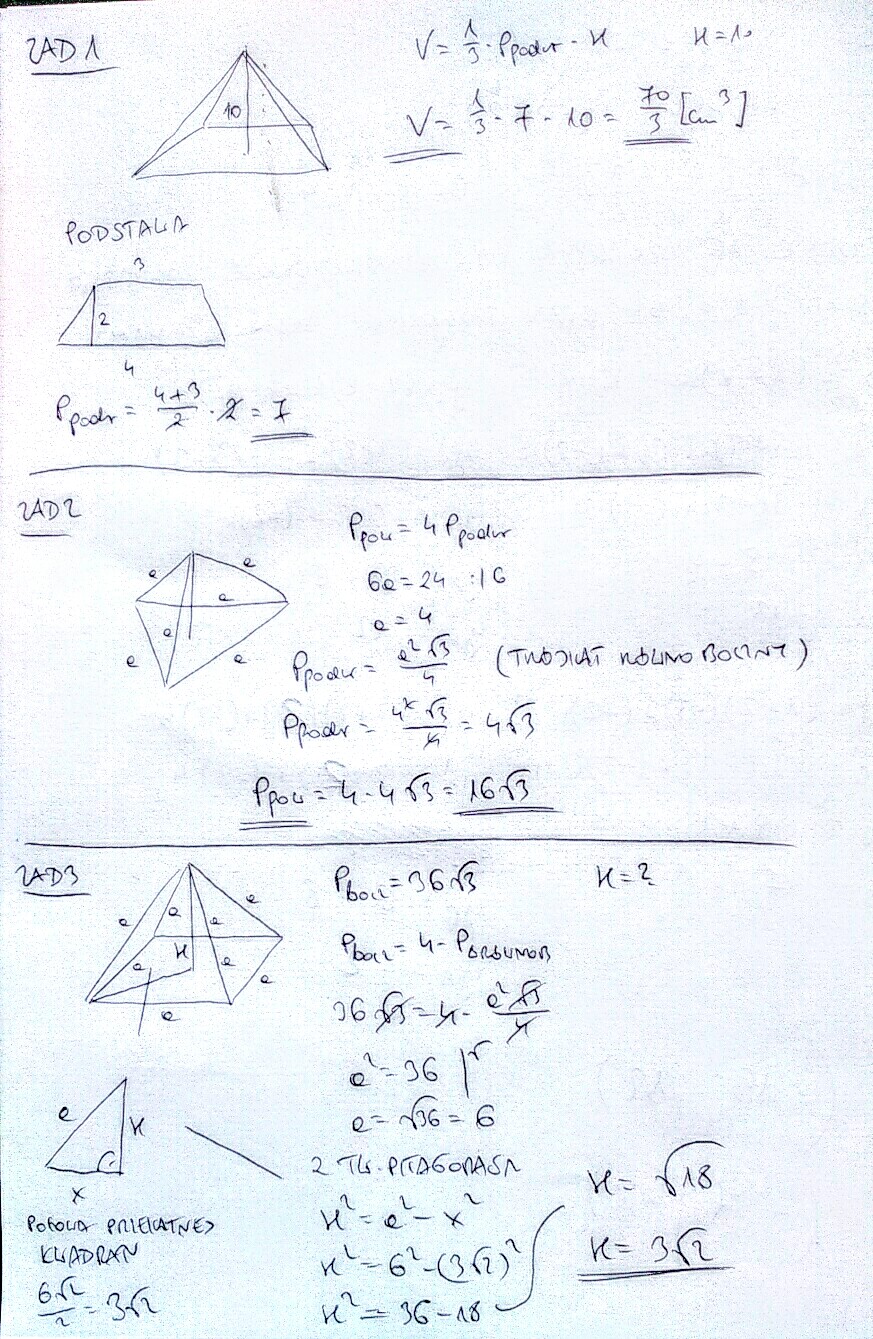 ZAD 1
V = 1/3 · Ppodst · H    H = 10
V = 1/3 · 7 · 10 = 70/3 [cm³]
10
PODSTAWA
3
2
4
Ppodst = (4+3)/2 · 2 = 7
ZAD 2
Ppow = 4 Ppodst
6a = 24 :16
a = 4
a a a a a a
Ppodst = a²√3/4 (TRÓJKĄT RÓWNOBOCZNY)
Ppodst = 4²√3/4 = 4√3
Ppow = 4 · 4√3 = 16√3
ZAD 3
Pbocz = 36√3    H = ?
a a a a a a a a H
Pbocz = 4 · PΔRÓWNOB
36√3 = 4 · a²√3/4
a² = 36 |√
a = √36 = 6
a H
x
POŁOWA PRZEKĄTNEJ
KWADRAN
6√2/2 = 3√2
Z TW. PITAGORASA
H² = a² - x²
H² = 6² - (3√2)²
H² = 36 - 18
H = √18
H = 3√2